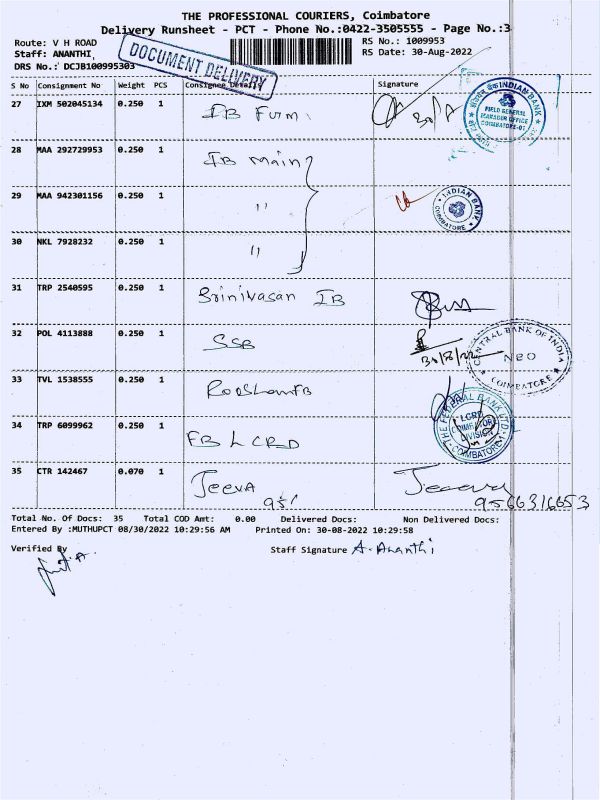 THE PROFESSIONAL COURIERS, Coimbatore
Delivery Runsheet - PCT - Phone No.:0422-3505555 - Page No.:3
Route: V H ROAD
RS No.: 1009953
Staff: ANANTHI
RS Date: 30-Aug-2022
DRS No.: DCJB100995303
DOCUMENT DELIVERY
S No Consignment No Weight PCS Consignee Details Signature
27 IXM 502045134 0.250 1 IB
INDIAN BANK
FIELD GENERAL
MANAGER OFFICE
COIMBATORE-01.
28 MAA 292729953 0.250 1 IB Main
29 MAA 942301156 0.250 1 "
INDIAN BANK
COIMBATORE
30 NKL 7928232 0.250 1 "
31 TRP 2540595 0.250 1 Srinivasan IB
32 POL 4113888 0.250 1 SSB 30/8/22
CENTRAL BANK OF INDIA
COIMBATORE
33 TVL 1538555 0.250 1
34 TRP 6099962 0.250 1 FB LCRD
THE FEDERAL BANK LTD.
LCRD
COIMBATORE
DIVISION
COIMBATORE
35 CTR 142467 0.070 1 JEEVA Jeeva
9566316653
Total No. Of Docs: 35 Total COD Amt: 0.00 Delivered Docs: Non Delivered Docs:
Entered By :MUTHUPCT 08/30/2022 10:29:56 AM Printed On: 30-08-2022 10:29:58
Verified By
Staff Signature A. Ananthi